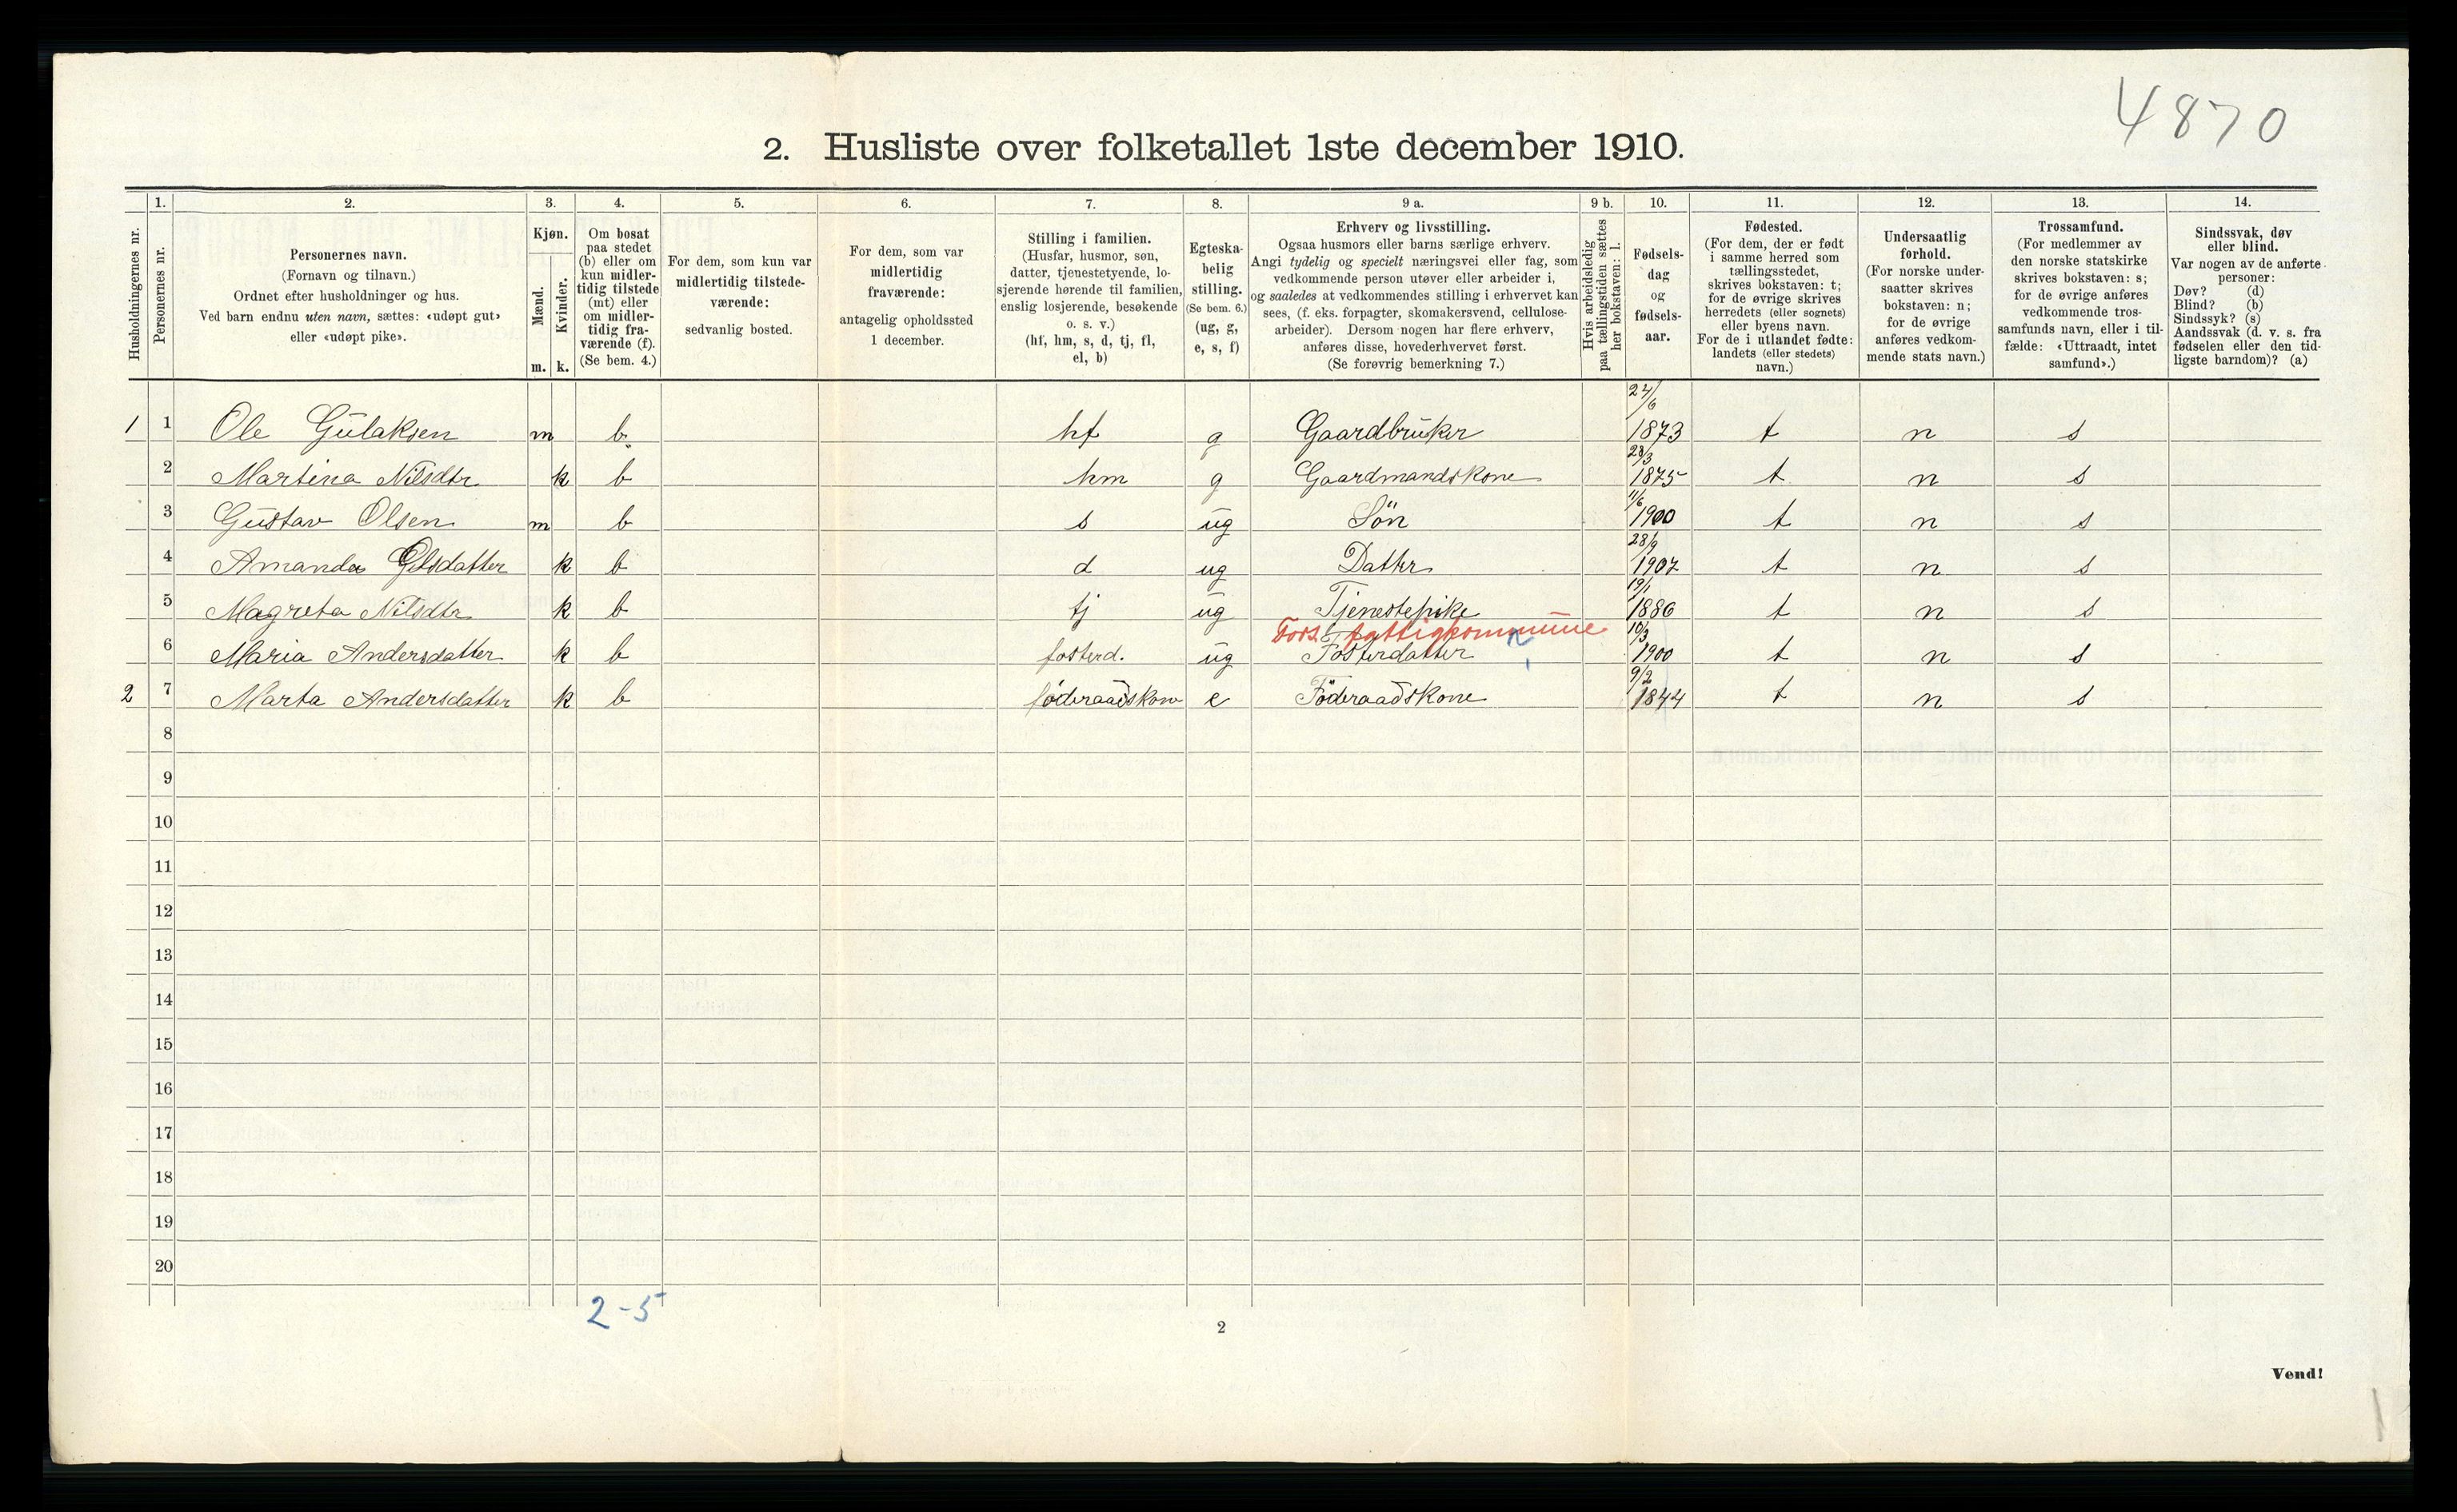 4870
2. Husliste over folketallet 1ste december 1910.
Husholdningernes nr.
1.
Personernes nr.
2.
Personernes navn.
(Fornavn og tilnavn.)
Ordnet efter husholdninger og hus.
Ved barn endnu uten navn, sættes: «udøpt gut»
eller «udøpt pike».
3.
Kjøn.
Mænd.
Kvinder.
m. k.
4.
Om bosat
paa stedet
(b) eller om
kun midler-
tidig tilstede
(mt) eller
om midler-
tidig fra-
værende (f).
(Se bem. 4.)
5.
For dem, som kun var
midlertidig tilstede-
værende:
sedvanlig bosted.
6.
For dem, som var
midlertidig
fraværende:
antagelig opholdssted
1 december.
7.
Stilling i familien.
(Husfar, husmor, søn,
datter, tjenestetyende, lo-
sjerende hørende til familien,
enslig losjerende, besøkende
o. s. v.)
(hf, hm, s, d, tj, fl,
el, b)
8.
Egteska-
belig
stilling.
(Se bem. 6.)
(ug, g,
e, s, f)
9 a.
Erhverv og livsstilling.
Ogsaa husmors eller barns særlige erhverv.
Angi tydelig og specielt næringsvei eller fag, som
vedkommende person utøver eller arbeider i,
og saaledes at vedkommendes stilling i erhvervet kan
sees, (f. eks. forpagter, skomakersvend, cellulose-
arbeider). Dersom nogen har flere erhverv,
anføres disse, hovederhvervet først.
(Se forøvrig bemerkning 7.)
9 b.
Hvis arbeidsledig
paa tællingstiden sættes
her bokstaven: l.
10.
Fødsels-
dag
og
fødsels-
aar.
11.
Fødested.
(For dem, der er født
i samme herred som
tællingsstedet,
skrives bokstaven: t;
for de øvrige skrives
herredets (eller sognets)
eller byens navn.
For de i utlandet fødte:
landets (eller stedets)
navn.)
12.
Undersaatlig
forhold.
(For norske under-
saatter skrives
bokstaven: n;
for de øvrige
anføres vedkom-
mende stats navn.)
13.
Trossamfund.
(For medlemmer av
den norske statskirke
skrives bokstaven: s;
for de øvrige anføres
vedkommende tros-
samfunds navn, eller i til-
fælde: «Uttraadt, intet
samfund».)
14.
Sindssvak, døv
eller blind.
Var nogen av de anførte
personer:
Døv? (d)
Blind? (b)
Sindssyk? (s)
Aandssvak (d. v. s. fra
fødselen eller den tid-
ligste barndom)? (a)
1 1 Ole Gulaksen m b hf g Gaardbruker 24/6 1873 t n s
2 Martina Nilsdtr k b hm g Gaardmandskone 23/3 1875 t n s
3 Gustav Olsen m b s ug Søn 11/6 1900 t n s
4 Amanda Olsdatter k b d ug Datter 28/9 1907 t n s
5 Magreta Nilsdtr k b tj ug Tjenestepike 19/1 1886 t n s
Fors. fattigkommune
6 Maria Andersdatter k b fosterd. ug Fosterdatter 10/3 1900 t n s
2 7 Marta Andersdatter k b føderaadskone e Føderaadskone 9/2 1844 t n s
8
9
10
11
12
13
14
15
16
17
18
19
20
2-5
2
Vend!